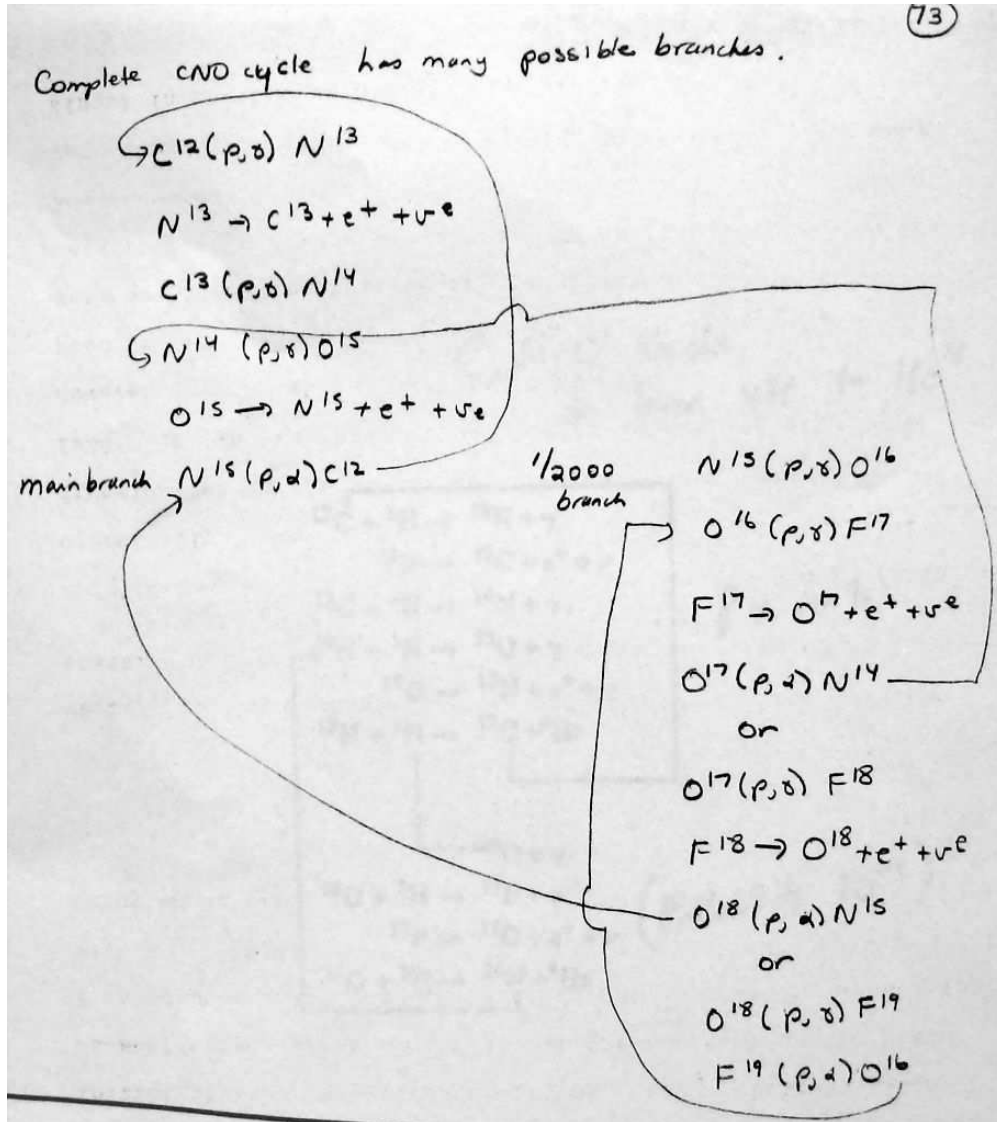 73
Complete CNO cycle has many possible branches.
C12(p,γ) N13
N13 → C13 + e+ + νe
C13 (p,γ) N14
N14 (p,γ) O15
O15 → N15 + e+ + νe
main branch N15 (p,α) C12
1/2000 branch
N15 (p,γ) O16
O16 (p,γ) F17
F17 → O17 + e+ + νe
O17 (p,α) N14
or
O17 (p,γ) F18
F18 → O18 + e+ + νe
O18 (p,α) N15
or
O18 (p,γ) F19
F19 (p,α) O16